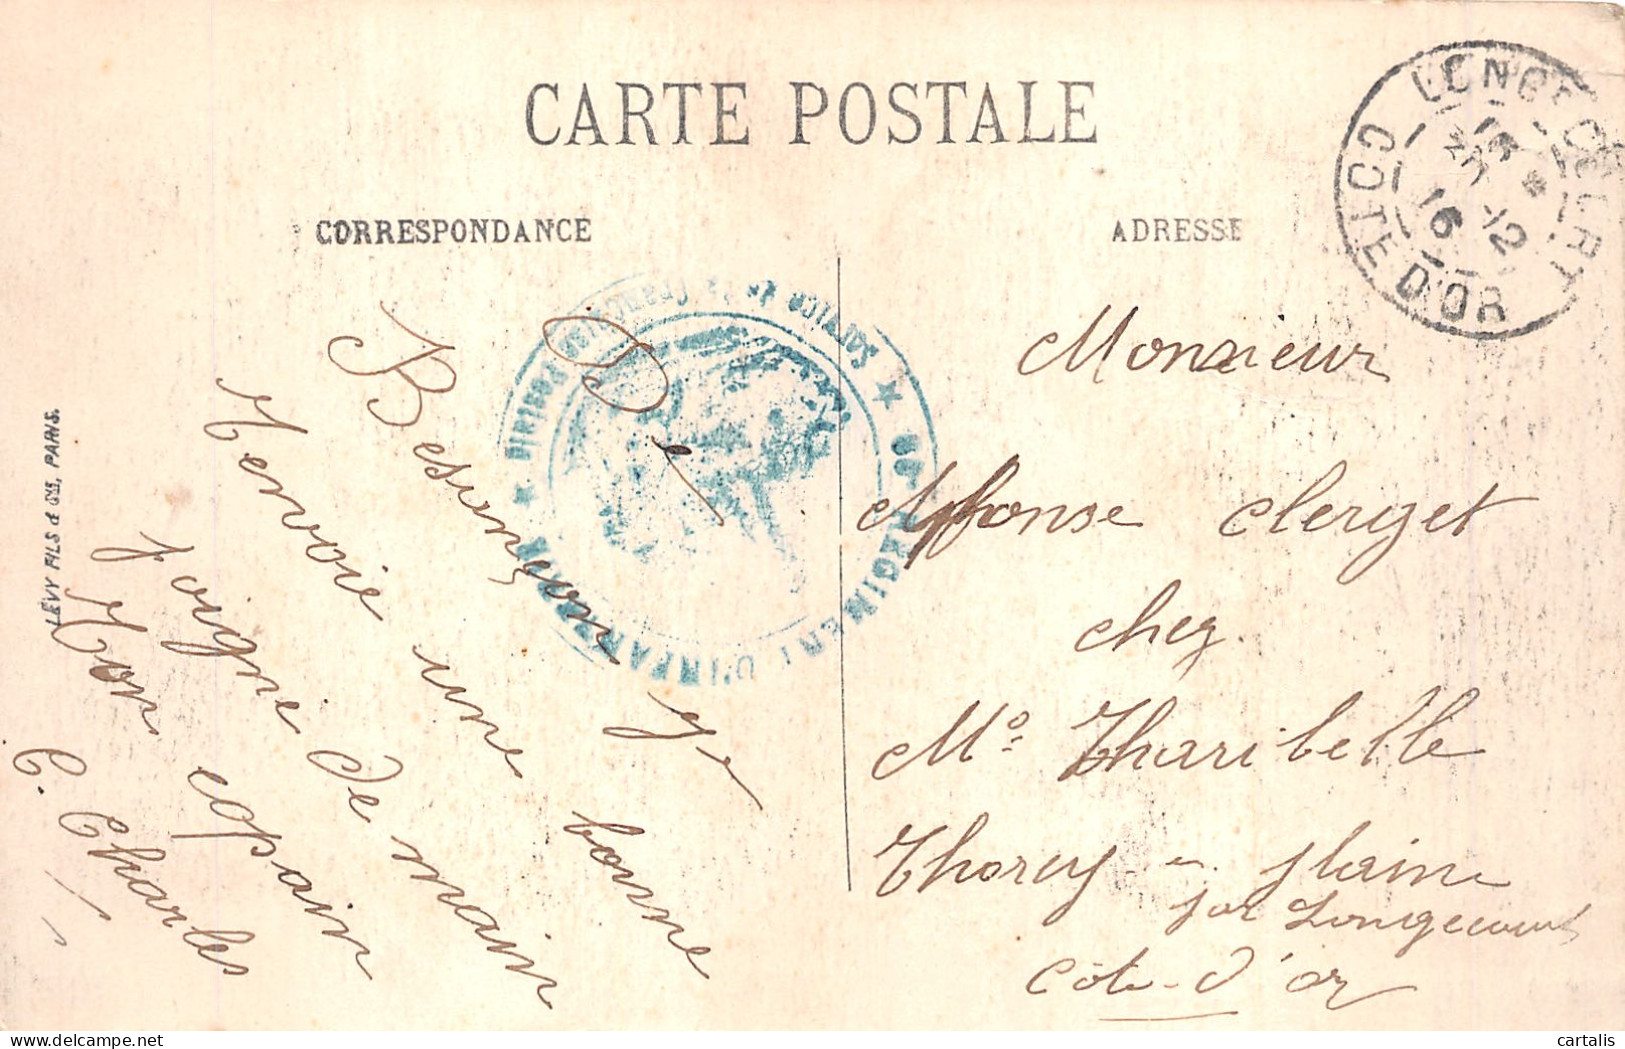 CARTE POSTALE
CORRESPONDANCE
ADRESSE
LONGECOURT
COTE D'OR
16 12
RÉGIMENT D'INFANTERIE
De
Besançon je
t'envoie une bonne
poigne de main
Ton copain
C. Charles
Monsieur
Alphonse Clerget
chez
Mr Tharibelle
Thorey en plaine
par Longecourt
Côte-d'or
LÉVY FILS & Cie, PARIS.
cartalis
delcampe.net